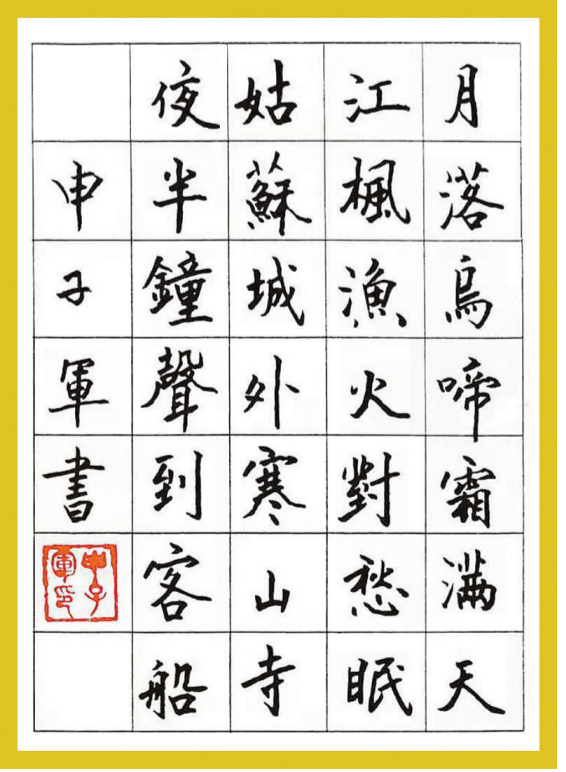 月落烏啼霜滿天
江楓漁火對愁眠
姑蘇城外寒山寺
夜半鐘聲到客船
申子軍書
申子
軍印